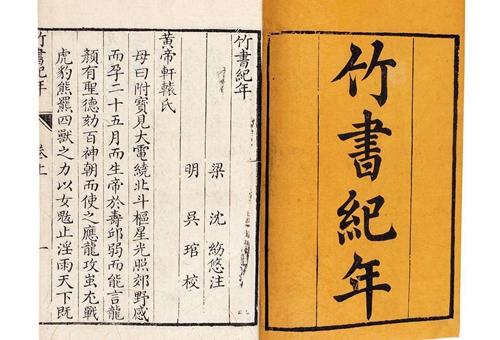 竹書紀年
竹書紀年
梁 沈 注
明 吳 琯 校
黃帝軒轅氏
母曰附寶見大電繞北斗樞星光照郊野感
而孕二十五月而生帝於壽邱弱而能言龍
顏有聖德劾百神朝而使之應龍攻蚩尤戰
虎豹熊羆四獸之力以女魃止淫雨天下既
竹書紀年 卷上